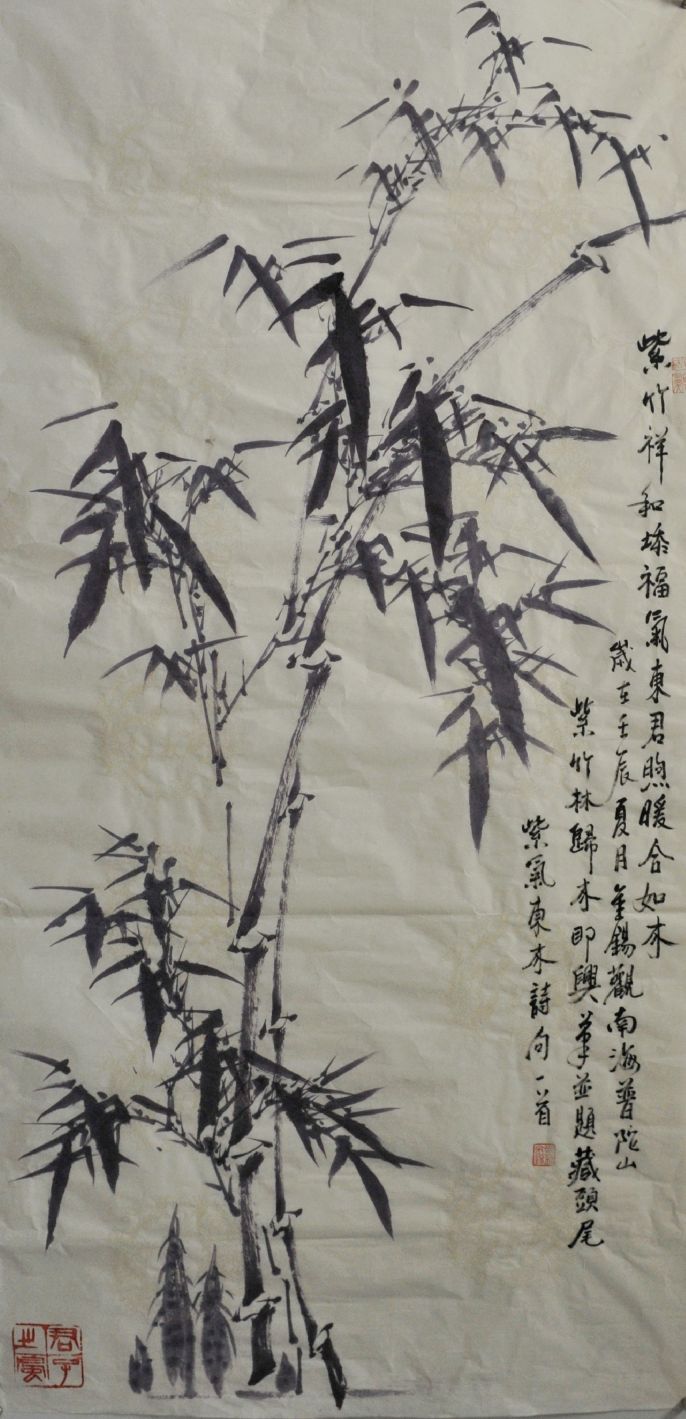 紫竹祥和添福氣東君煦暖合如來
歲在壬辰夏月金錫觀南海普陀山
紫竹林歸來即興筆並題藏頭尾
紫氣東來詩句一首
君子之